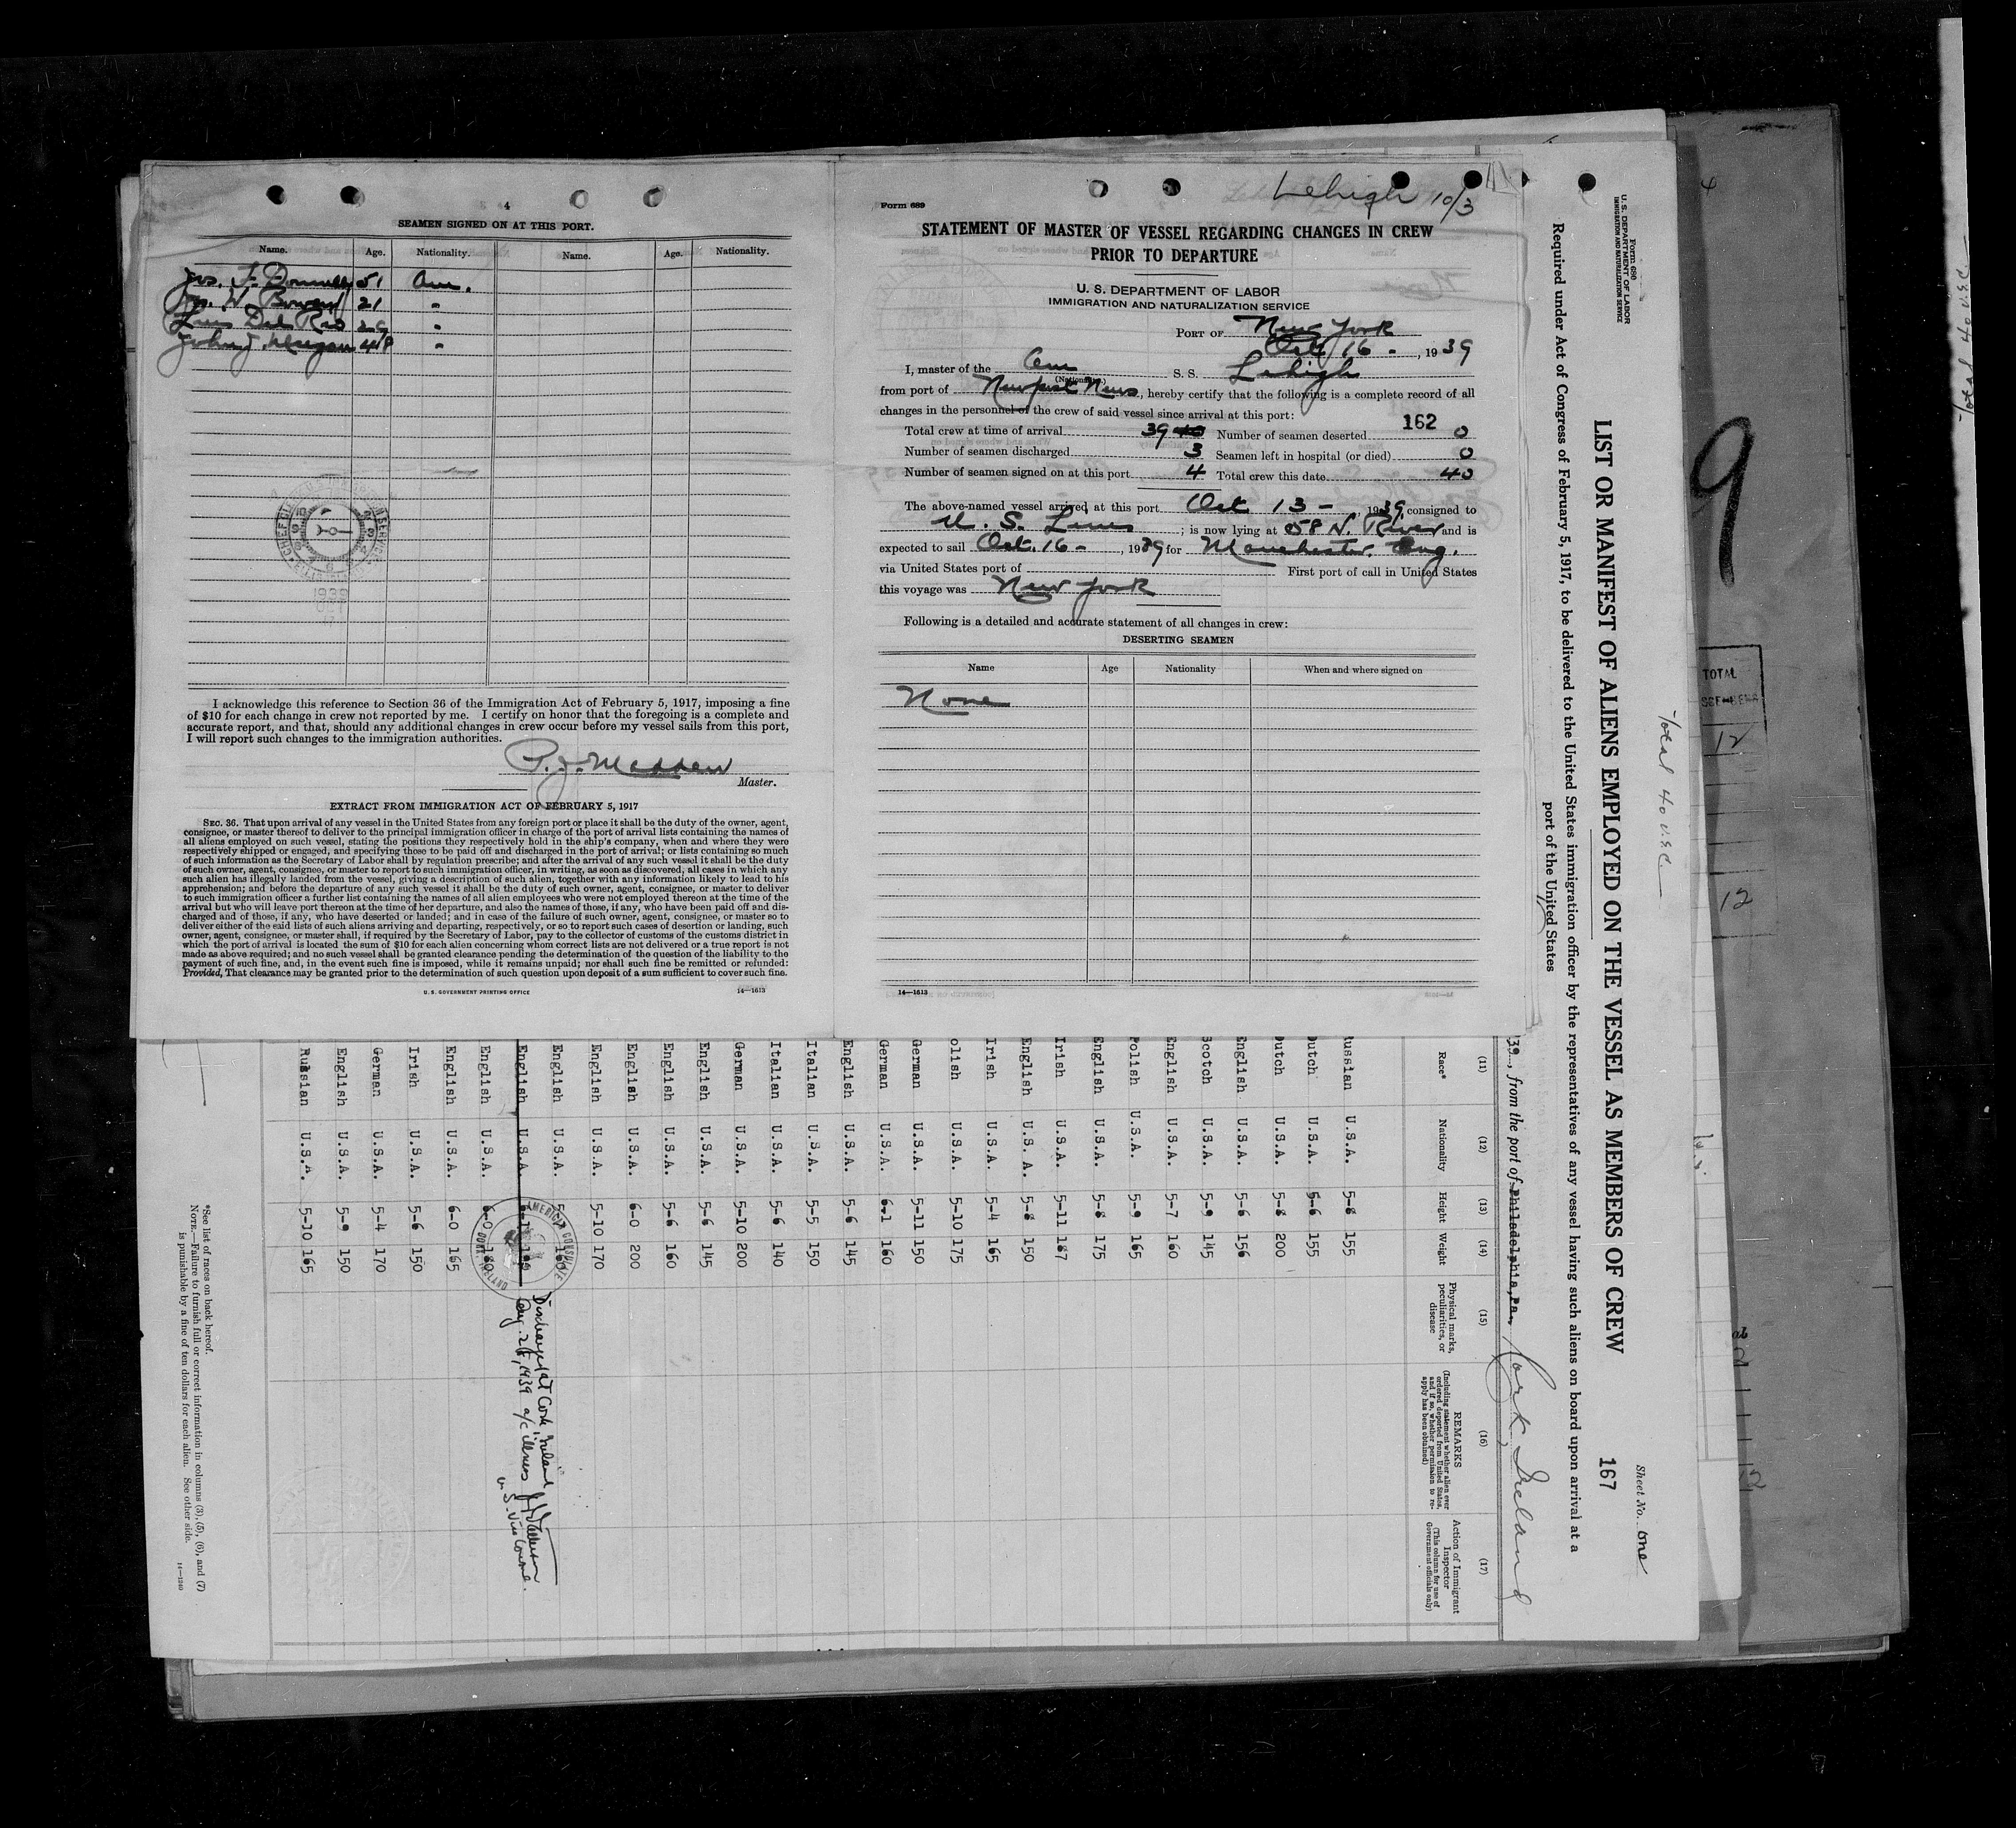 4
SEAMEN SIGNED ON AT THIS PORT.
Name. Age. Nationality. Name. Age. Nationality.
Jos. F. Donnelly 51 Am.
Jos. W. Bowen 21 "
Luis Del Rio 29 "
John J. 48 "
I acknowledge this reference to Section 36 of the Immigration Act of February 5, 1917, imposing a fine
of $10 for each change in crew not reported by me. I certify on honor that the foregoing is a complete and
accurate report, and that, should any additional changes in crew occur before my vessel sails from this port,
I will report such changes to the immigration authorities.
P. J. Madden
Master.
EXTRACT FROM IMMIGRATION ACT OF FEBRUARY 5, 1917
SEC. 36. That upon arrival of any vessel in the United States from any foreign port or place it shall be the duty of the owner, agent,
consignee, or master thereof to deliver to the principal immigration officer in charge of the port of arrival lists containing the names of
all aliens employed on such vessel, stating the positions they respectively hold in the ship's company, when and where they were
respectively shipped or engaged, and specifying those to be paid off and discharged in the port of arrival; or lists containing so much
of such information as the Secretary of Labor shall by regulation prescribe; and after the arrival of any such vessel it shall be the duty
of such owner, agent, consignee, or master to report to such immigration officer, in writing, as soon as discovered, all cases in which any
such alien has illegally landed from the vessel, giving a description of such alien, together with any information likely to lead to his
apprehension; and before the departure of any such vessel it shall be the duty of such owner, agent, consignee, or master to deliver
to such immigration officer a further list containing the names of all alien employees who were not employed thereon at the time of the
arrival but who will leave port thereon at the time of her departure, and also the names of those, if any, who have been paid off and dis-
charged and of those, if any, who have deserted or landed; and in case of the failure of such owner, agent, consignee, or master so to
deliver either of the said lists of such aliens arriving and departing, respectively, or so to report such cases of desertion or landing, such
owner, agent, consignee, or master shall, if required by the Secretary of Labor, pay to the collector of customs of the customs district in
which the port of arrival is located the sum of $10 for each alien concerning whom correct lists are not delivered or a true report is not
made as above required; and no such vessel shall be granted clearance pending the determination of the question of the liability to the
payment of such fine, and, in the event such fine is imposed, while it remains unpaid; nor shall such fine be remitted or refunded:
Provided, That clearance may be granted prior to the determination of such question upon deposit of a sum sufficient to cover such fine.
U.S. GOVERNMENT PRINTING OFFICE 14—1613
Lehigh 10/3
Form 689
STATEMENT OF MASTER OF VESSEL REGARDING CHANGES IN CREW
PRIOR TO DEPARTURE
U. S. DEPARTMENT OF LABOR
IMMIGRATION AND NATURALIZATION SERVICE
PORT OF New York
Oct 16 - , 1939
I, master of the Am S. S. Lehigh
(Nationality)
from port of Newport News, hereby certify that the following is a complete record of all
changes in the personnel of the crew of said vessel since arrival at this port:
162
Total crew at time of arrival 39 40 Number of seamen deserted 0
Number of seamen discharged 3 Seamen left in hospital (or died) 0
Number of seamen signed on at this port 4 Total crew this date 40
The above-named vessel arrived at this port Oct. 13 - , 1939, consigned to
U. S. Lines ; is now lying at 58 N. River and is
expected to sail Oct. 16 - , 1939 for Manchester. Eng.
via United States port of First port of call in United States
this voyage was New York
Following is a detailed and accurate statement of all changes in crew:
DESERTING SEAMEN
Name Age Nationality When and where signed on
None
14—1613
Form 680
U. S. DEPARTMENT OF LABOR
IMMIGRATION AND NATURALIZATION SERVICE
Sheet No. One
Total 40 U.S.C.
LIST OR MANIFEST OF ALIENS EMPLOYED ON THE VESSEL AS MEMBERS OF CREW 167
Required under Act of Congress of February 5, 1917, to be delivered to the United States immigration officer by the representatives of any vessel having such aliens on board upon arrival at a
port of the United States
39, from the port of Philadelphia, Pa. Cork, Ireland
(11) (12) (13) (14) (15) (16) (17)
Race* Nationality Height Weight Physical marks, peculiarities, or disease REMARKS (Including statement whether alien ever ordered deported from United States, and if so, whether permission to re-apply has been obtained) Action of Immigrant Inspector (This column for use of Government officials only)
ussian U.S.A. 5-8 155
utch U.S.A. 5-6 155
utch U.S.A. 5-8 200
English U.S.A. 5-6 156
Scotch U.S.A. 5-9 145
English U.S.A. 5-7 160
Polish U.S.A. 5-9 165
English U.S.A. 5-8 175
Irish U.S.A. 5-11 187
English U.S. A. 5-8 150
Irish U.S.A. 5-4 165
olish U.S.A. 5-10 175
German U.S.A. 5-11 150
German U.S.A. 6-1 160
English U.S.A. 5-6 145
Italian U.S.A. 5-5 150
Italian U.S.A. 5-6 140
German U.S.A. 5-10 200
English U.S.A. 5-6 145
English U.S.A. 5-6 160
English U.S.A. 6-0 200
English U.S.A. 5-10 170
English U.S.A. 160
English U.S.A. Discharged at Cork, Ireland
Aug. 1939 a/c illness
U.S. Vice Consul.
English U.S.A. 6-0 180
English U.S.A. 6-0 165
Irish U.S.A. 5-6 150
German U.S.A. 5-4 170
English U.S.A. 5-9 150
Russian U.S.A. 5-10 165
AMERICAN CONSULATE
*See list of races on back hereof.
NOTE.—Failure to furnish full or correct information in columns (3), (5), (6), and (7)
is punishable by a fine of ten dollars for each alien. See other side.
14—1240
9
TOTAL
12
12
12